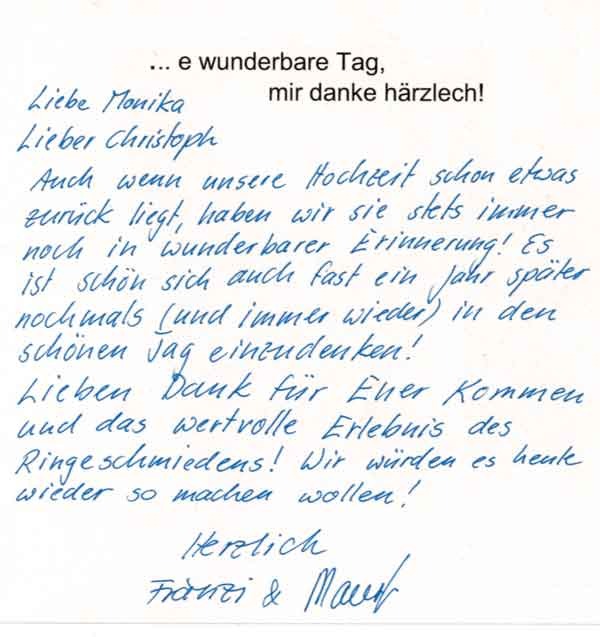 ... e wunderbare Tag,
mir danke härzlech!
Liebe Monika
Lieber Christoph
Auch wenn unsere Hochzeit schon etwas
zurück liegt, haben wir sie stets immer
noch in wunderbarer Erinnerung! Es
ist schön sich auch fast ein Jahr später
nochmals (und immer wieder) in den
schönen Tag einzudenken!
Lieben Dank für Euer Kommen
und das wertvolle Erlebnis des
Ringeschmiedens! Wir würden es heute
wieder so machen wollen!
Herzlich
Fränzi &